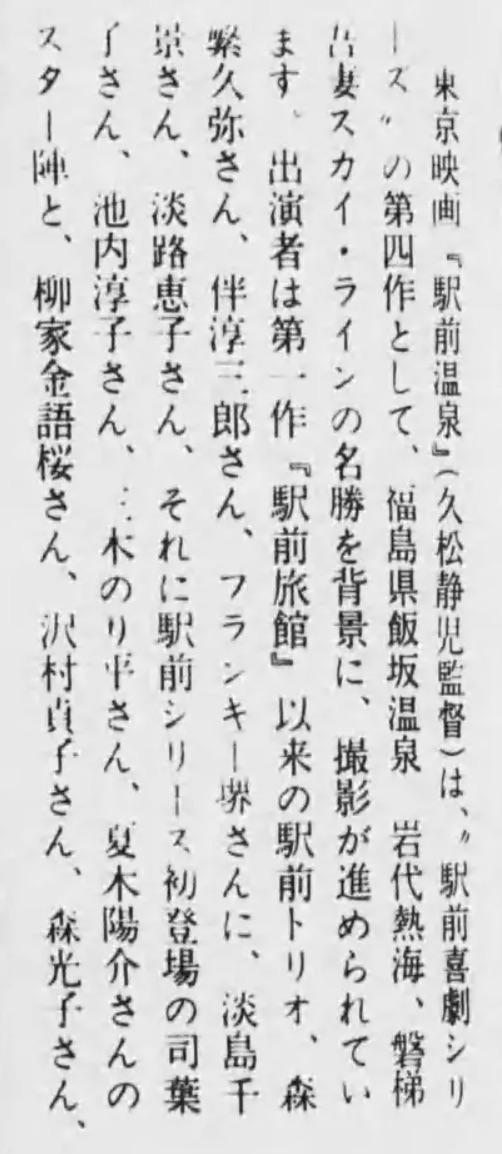 東京映画『駅前温泉』(久松静児監督)は、〃駅前喜劇シリ
ーズ〃の第四作として、福島県飯坂温泉　岩代熱海、磐梯
吾妻スカイ・ラインの名勝を背景に、撮影が進められてい
ます。出演者は第一作『駅前旅館』以来の駅前トリオ、森
繁久弥さん、伴淳三郎さん、フランキー堺さんに、淡島千
景さん、淡路恵子さん、それに駅前シリーズ初登場の司葉
子さん、池内淳子さん、三木のり平さん、夏木陽介さんの
スター陣と、柳家金語楼さん、沢村貞子さん、森光子さん、